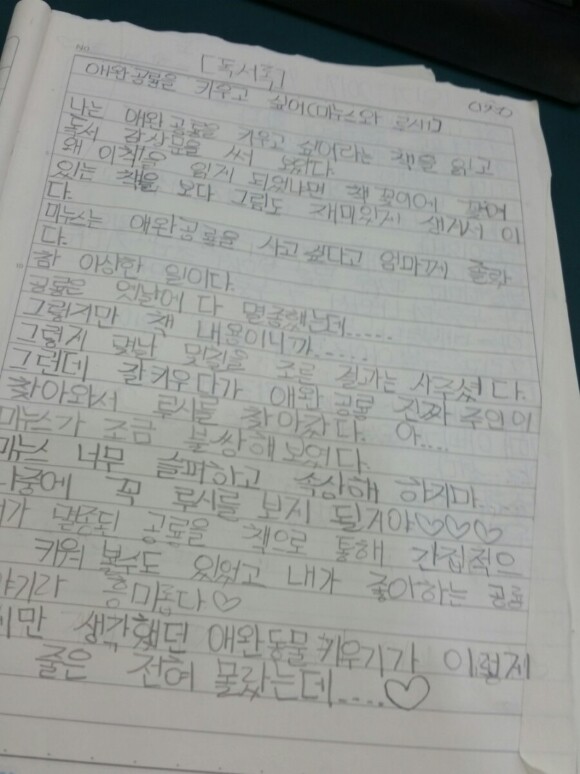 NO.
[독서록]
애완공룡을 키우고 싶어(마뉴스와 루시)
나는 애완 공룡을 키우고 싶어라는 책을 읽고
독서 감상문을 써 보았다.
왜 이책을 읽게 되었냐면 책 꽂이에 꽂혀
있는 책을 보다 그림도 재미있게 생겨서 이
다.
마뉴스는 애완공룡을 사고 싶다고 엄마께 졸랐
다.
참 이상한 일이다.
공룡은 옛날에 다 멸종했는데.....
그렇지만 책 내용이니까.....
그렇게 몇날 몇일을 조른 결과는 사주셨다.
그런데 잘키우다가 애완 공룡 진짜 주인이
찾아와서 루시를 찾아갔다. 아....
마뉴스가 조금 불쌍해 보였다.
마뉴스 너무 슬퍼하고 속상해 하지마....
나중에 꼭 루시를 보게 될거야♡♡♡
멸종된 공룡을 책으로 통해 간접적으
키워 볼수도 있었고 내가 좋아하는 공룡
야기라 흥미롭다♡
지만 생각했던 애완동물 키우기가 이렇게
줄은 전혀 몰랐는데....♡